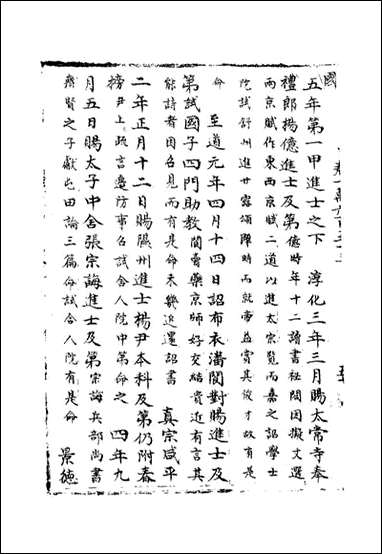 五年第一甲進士之下 淳化三年三月賜太常寺奉
禮郎楊億進士及第億時年十二讀書祕閣因擬文選
兩京賦作東西京賦二道以進太宗覽而嘉之詔學士
院試舒州進甘露頌頃時而就帝益賞其俊才故有是
命 至道元年四月十四日詔布衣潘閬對賜進士及
第試國子四門助教閬賣藥京師好交結貴近有言其
能詩者因召見而有是命未幾追還詔書 真宗咸平
二年正月十二日賜隰州進士楊尹本科及第仍附春
榜尹上疏言邊防事召試舍人院中第命之 四年九
月五日賜太子中舍張宗誨進士及第宗誨兵部尚書
齊賢之子獻屯田論三篇命試舍人院有是命 景德